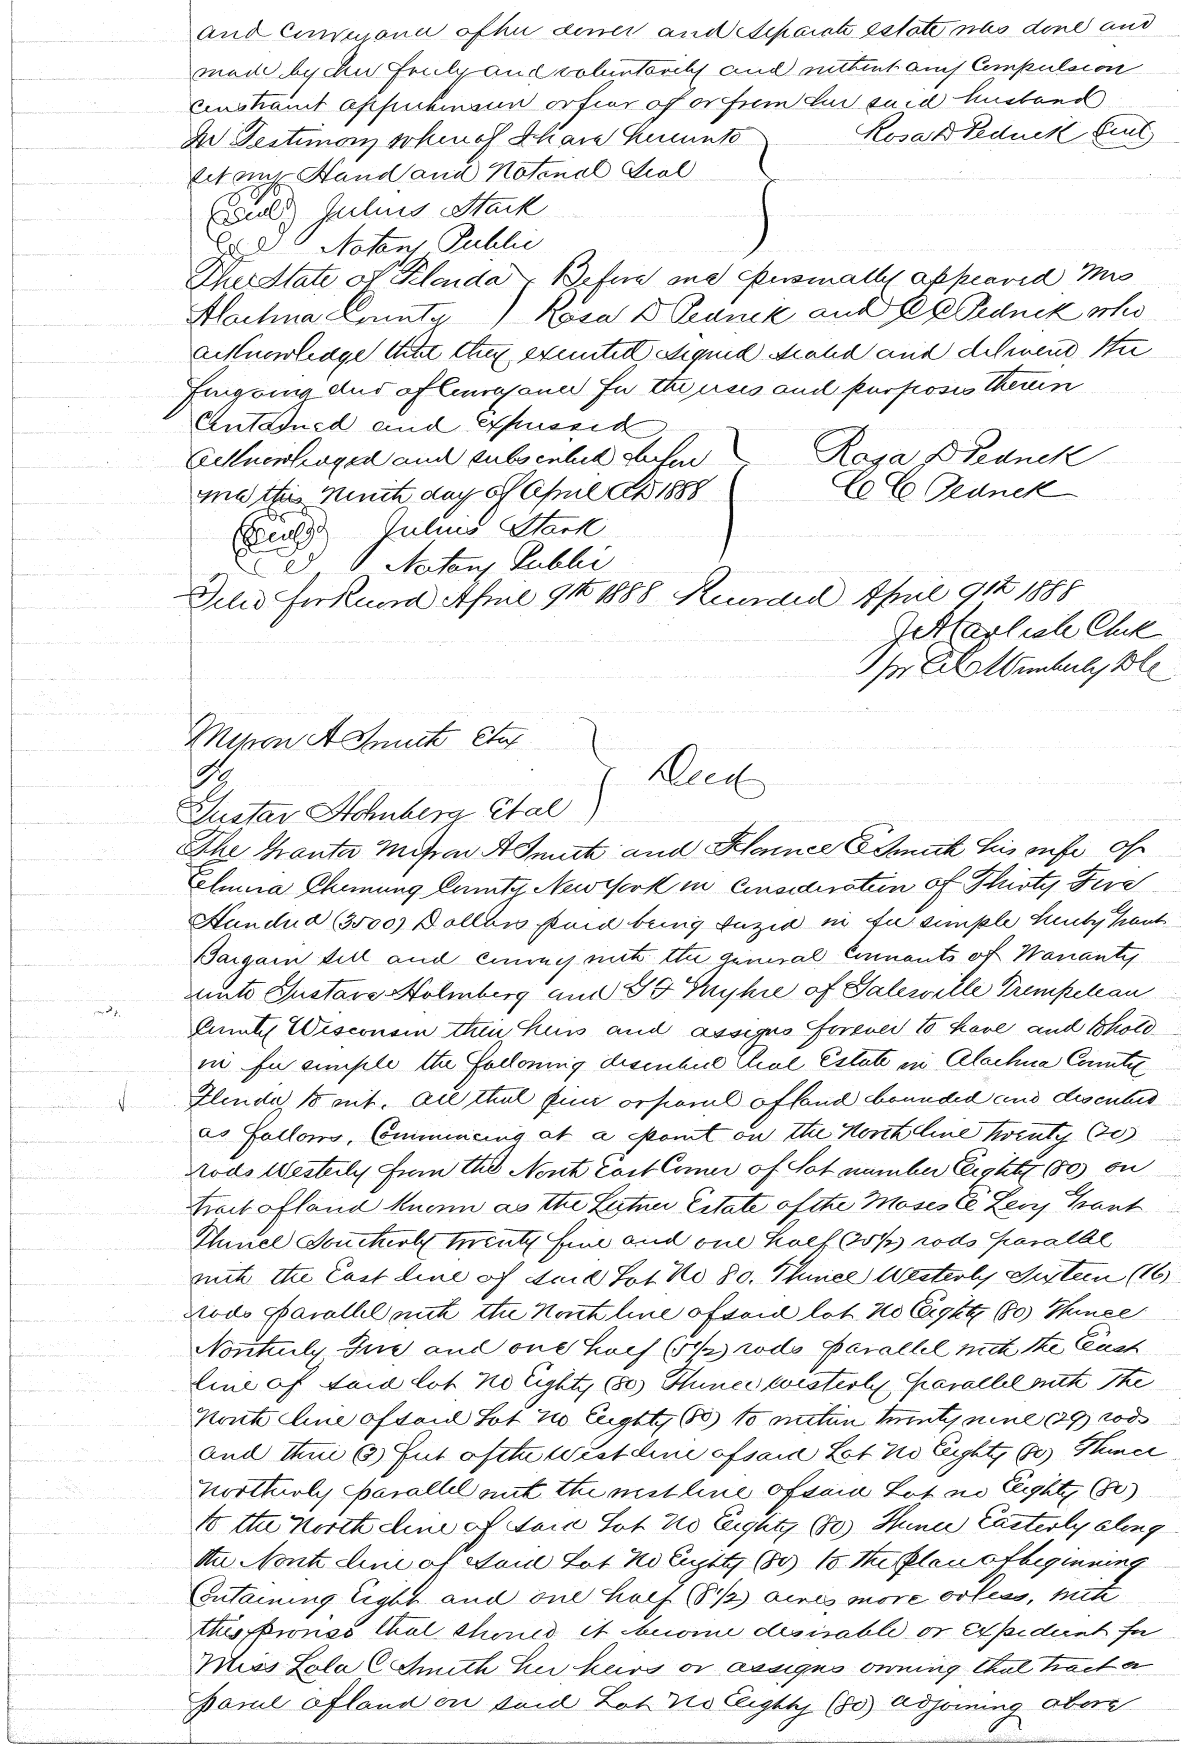 and Conveyance of her dower and Separate estate was done and
made by her freely and voluntarily and without any Compulsion
constraint apprehension or fear of or from her said husband
In Testimony whereof I have hereunto Rosa D Pednick Seal
set my Hand and Notarial Seal
(Seal) Julius Stark
Notary Public
The State of Florida } Before me personally appeared Mrs
Alachua County } Rosa D Pednick and C C Pednick who
acknowledge that they executed signed sealed and delivered the
foregoing deed of Conveyance for the uses and purposes therein
Contained and Expressed
Acknowledged and subscribed before Rosa D Pednick
me this ninth day of April AD 1888 C C Pednick
(Seal) Julius Stark
Notary Public
Filed for Record April 9th 1888 Recorded April 9th 1888
J A Carlisle Clerk
pr Wimberly DC
Myron A Smith Etux
To } Deed
Gustav Holmberg Etal
The Grantor Myron A Smith and Florence E Smith his wife of
Elmira Chemung County New York in Consideration of Thirty Five
Hundred (3500) Dollars paid being seized in fee simple hereby Grant
Bargain sell and convey with the general Covenants of Warranty
unto Gustave Holmberg and G F Myhre of Galesville Trempeleau
County Wisconsin their heirs and assigns forever to have and to hold
in fee simple the following described Real Estate in Alachua County
Florida to wit. All that piece or parcel of land bounded and described
as follows, Commencing at a point on the North line twenty (20)
rods Westerly from the North East Corner of Lot number Eighty (80) on
tract of land known as the Leitner Estate of the Moses E Levy Grant
Thence Southerly twenty five and one half (25½) rods parallel
with the East line of said Lot No 80. Thence Westerly Sixteen (16)
rods parallel with the North line of said lot No Eighty (80) Thence
Northerly Five and one half (5½) rods parallel with the East
line of said lot No Eighty (80) Thence westerly parallel with the
North line of said Lot No Eighty (80) to within twenty nine (29) rods
and three (3) feet of the West line of said Lot No Eighty (80) Thence
Northerly parallel with the west line of said Lot no Eighty (80)
to the North line of said Lot No Eighty (80) Thence Easterly along
the North line of said Lot No Eighty (80) to the place of beginning
Containing Eight and one half (8½) acres more or less, with
this proviso that should it become desirable or expedient for
Miss Lola C Smith her heirs or assigns owning that tract or
parcel of land on said Lot No Eighty (80) adjoining above